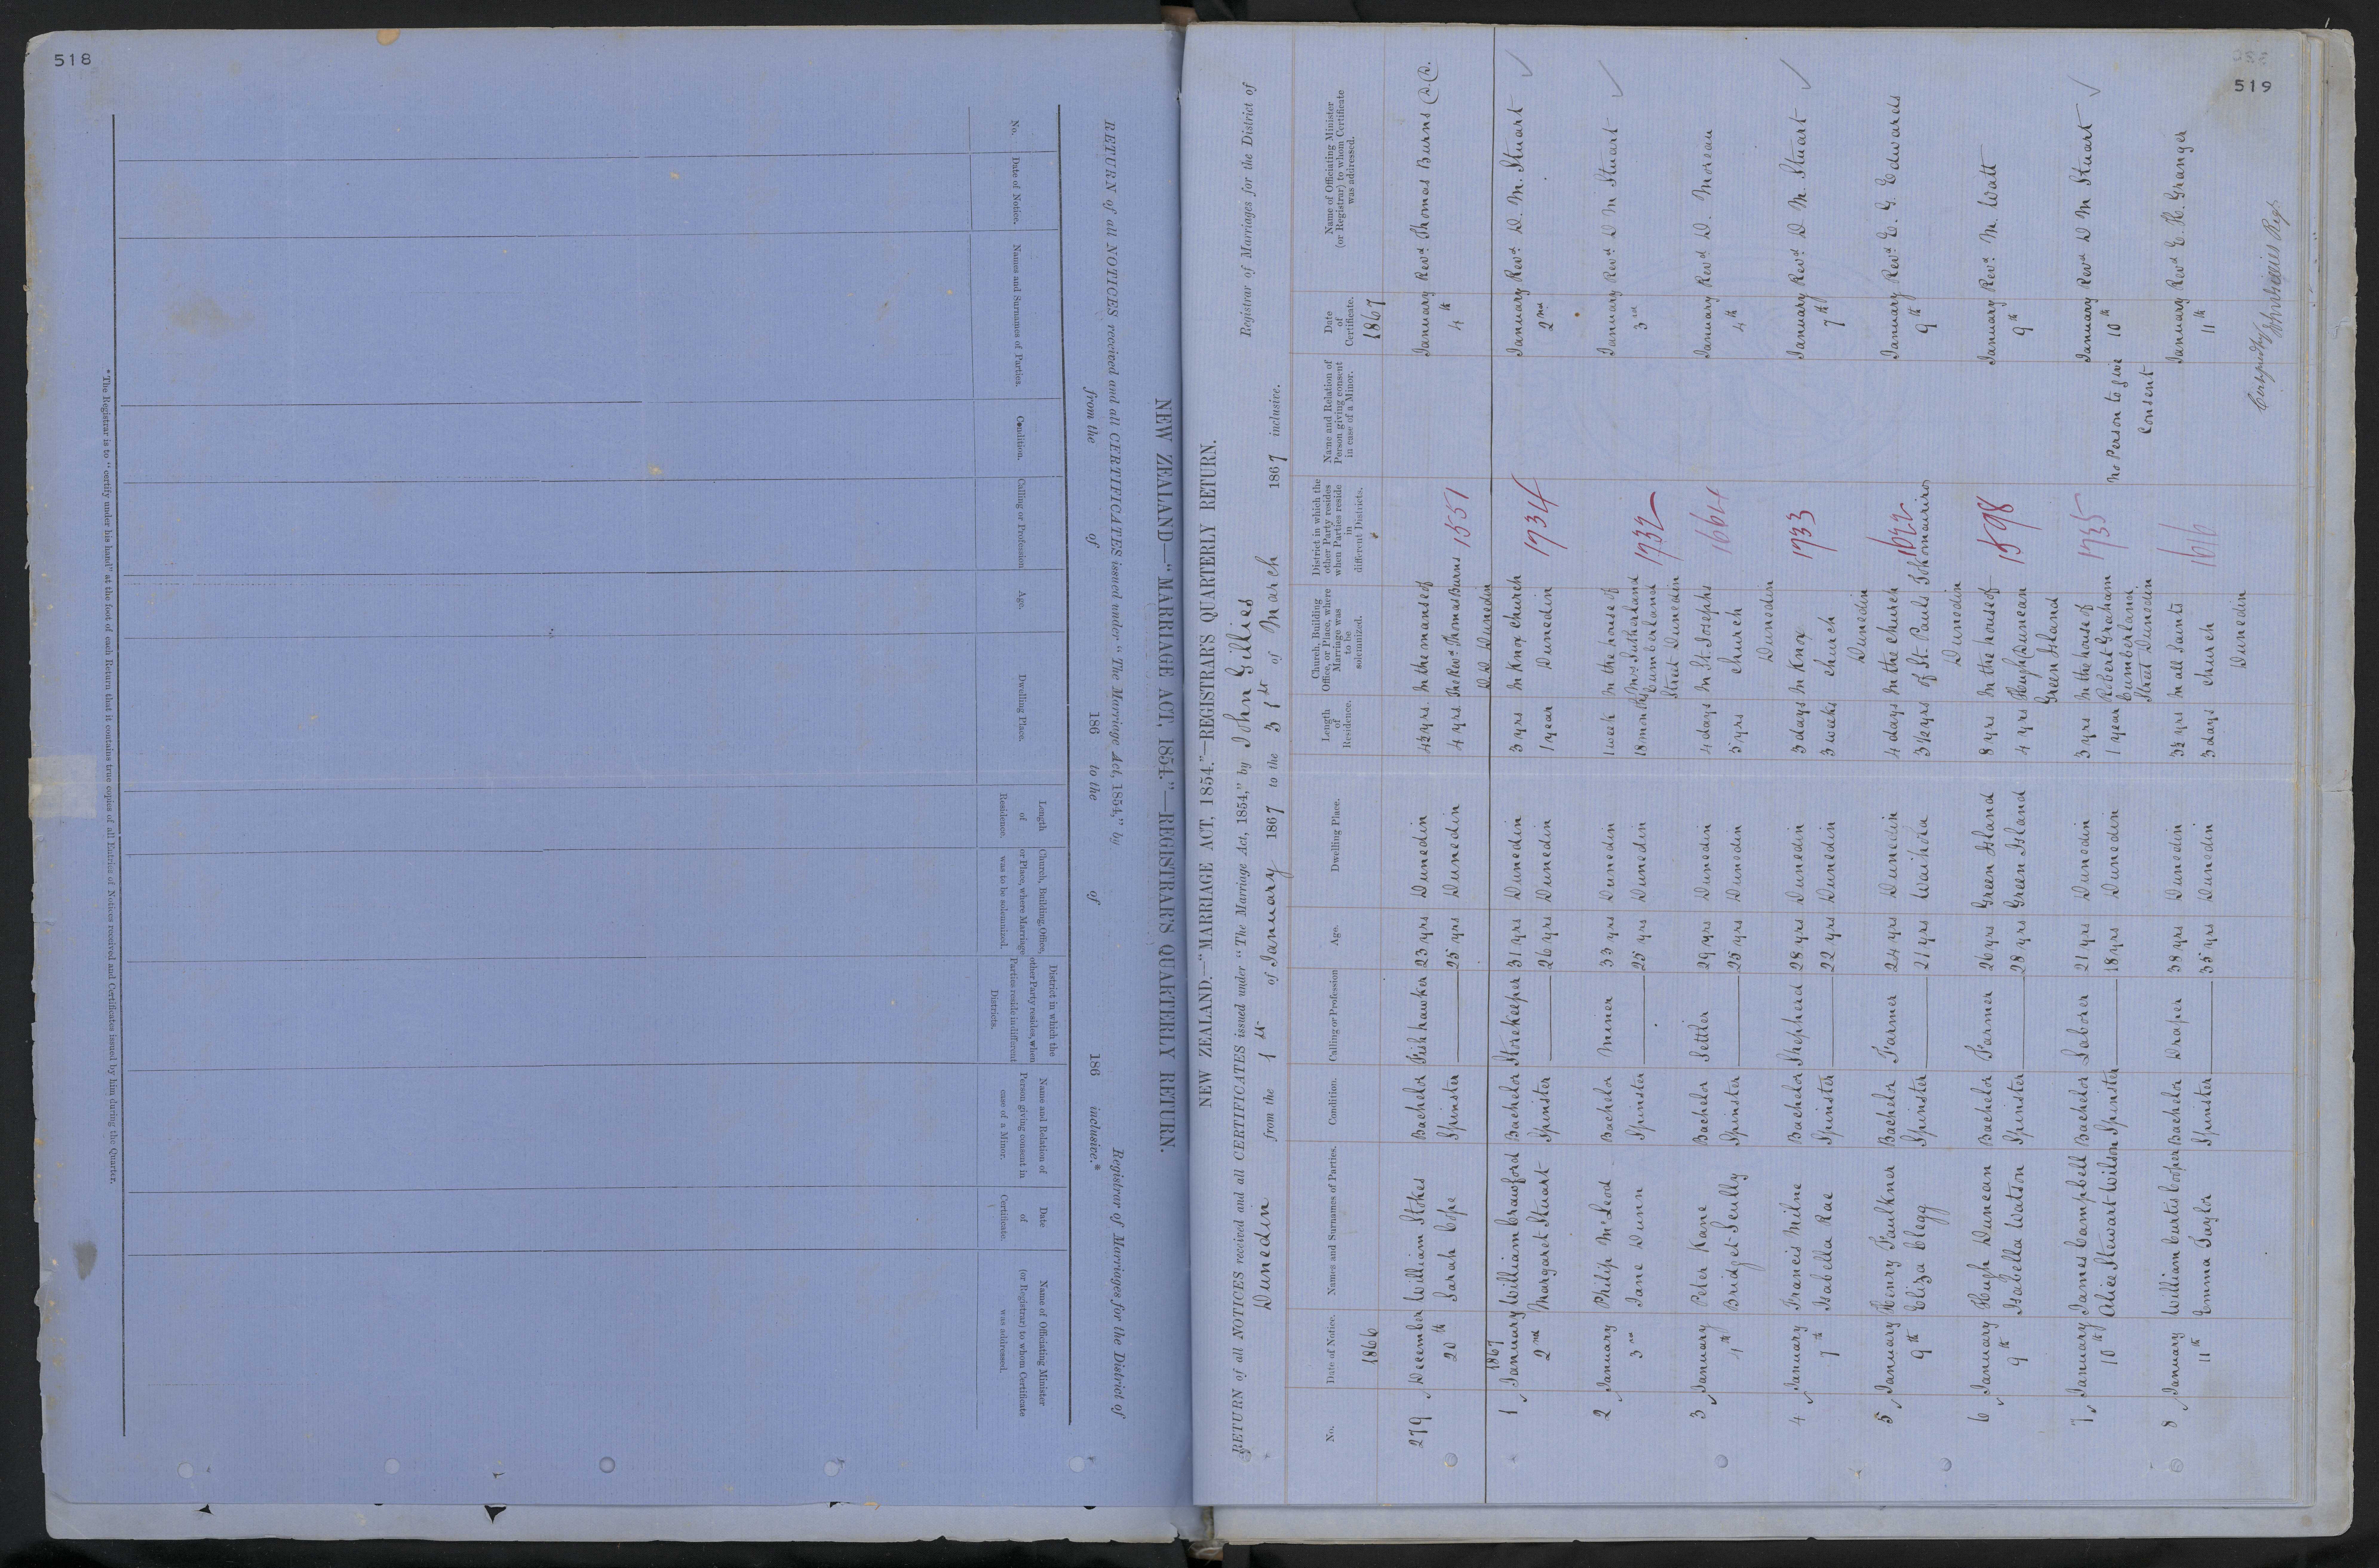 518
NEW ZEALAND—"MARRIAGE ACT, 1854."—REGISTRAR'S QUARTERLY RETURN.
RETURN of all NOTICES received and all CERTIFICATES issued under "The Marriage Act, 1854," by
Registrar of Marriages for the District of
from the of 186 to the of 186 inclusive.*
No. Date of Notice. Names and Surnames of Parties. Condition. Calling or Profession Age. Dwelling Place. Length of Residence. Church, Building, Office, or Place, where Marriage was to be solemnized. District in which the other Party resides, when Parties reside in different Districts. Name and Relation of Person giving consent in case of a Minor. Date of Certificate. Name of Officiating Minister (or Registrar) to whom Certificate was addressed.
*The Registrar is to "certify under his hand" at the foot of each Return that it contains true copies of all Entries of Notices received and Certificates issued by him during the Quarter.
519
NEW ZEALAND.—"MARRIAGE ACT, 1854."—REGISTRAR'S QUARTERLY RETURN.
RETURN of all NOTICES received and all CERTIFICATES issued under "The Marriage Act, 1854," by John Gillies Registrar of Marriages for the District of
Dunedin from the 1st of January 1867 to the 31st of March 1867 inclusive.
No. Date of Notice. Names and Surnames of Parties. Condition. Calling or Profession Age. Dwelling Place. Length of Residence. Church, Building Office, or Place, where Marriage was to be solemnized. District in which the other Party resides when Parties reside in different Districts. Name and Relation of Person giving consent in case of a Minor. Date of Certificate. Name of Officiating Minister (or Registrar) to whom Certificate was addressed.
1866 1867
279 December William Stokes Bachelor Fish hawker 23 yrs Dunedin 4½ yrs. In the manse of January Revd. Thomas Burns D.D.
20th Sarah Cope Spinster 25 yrs Dunedin 4 yrs. The Revd. Thomas Burns 1551 4th
D.D. Dunedin
1867
1 January William Crawford Bachelor Storekeeper 31 yrs Dunedin 3 yrs In Knox church 1734 January Revd. D. M. Stuart
2nd Margaret Stuart Spinster 26 yrs Dunedin 1 year Dunedin 2nd
2 January Philip McLeod Bachelor Miner 33 yrs Dunedin 1 week In the house of January Revd. D M Stuart
3rd Jane Dunn Spinster 25 yrs Dunedin 18 months Mrs Sutherland 1732 3rd
Cumberland
Street Dunedin
3 January Peter Kane Bachelor Settler 29 yrs Dunedin 4 days In St. Josephs 1664 January Revd D. Moreau
Bridget Scully Spinster 25 yrs Dunedin 5 yrs church 4th
Dunedin
4 January Francis Milne Bachelor Shepherd 28 yrs Dunedin 3 days In Knox 1733 January Revd. D M. Stuart
7th Isabella Rae Spinster 22 yrs Dunedin 3 weeks church 7th
Dunedin
5 January Henry Faulkner Bachelor Farmer 24 yrs Dunedin 4 days In the church 1622 January Revd. E. G. Edwards
9th Eliza Clegg Spinster 21 yrs Waihola 3½ yrs of St. Pauls 9th
Dunedin
6 January Hugh Duncan Bachelor Farmer 26 yrs Green Island 8 yrs In the house of 1598 January Revd. M. Watt
9th Isabella Watson Spinster 28 yrs Green Island 4 yrs Hugh Duncan 9th
Green Island
7 January James Campbell Bachelor Laborer 21 yrs Dunedin 3 yrs In the house of 1735 No Person to give January Revd D M Stuart
10th Alice Stewart Wilson Spinster 18 yrs Dunedin 1 year Robert Graham Consent 10th
Cumberland
Street Dunedin
8 January William Curtis Cooper Bachelor Draper 38 yrs Dunedin 3½ yrs In All Saints 1616 January Revd E. H. Granger
11th Emma Taylor Spinster 35 yrs Dunedin 3 days church 11th
Dunedin